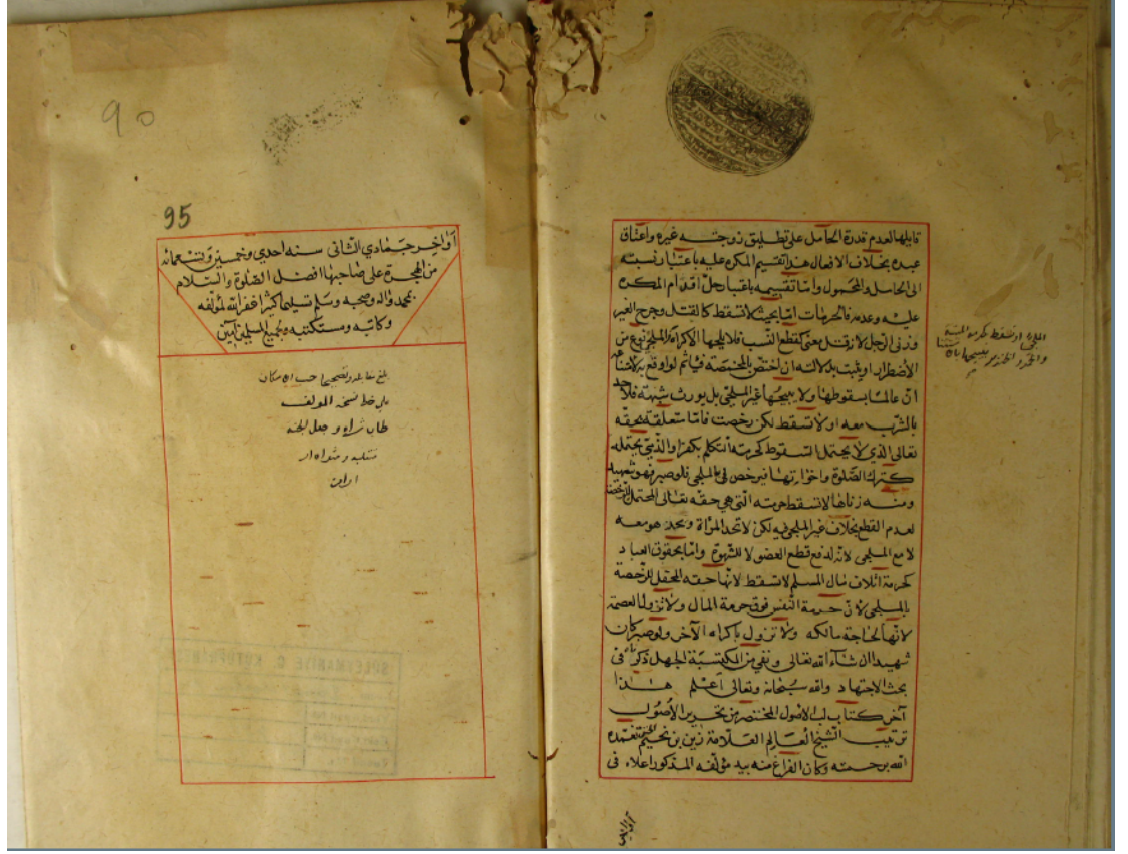 قابلها لعدم قدرة الحامل على تطليق زوجته غيره واعتاق
عبده بخلاف الافعال هذا تقسيم المكره عليه باعتبار نسبته
الى الحامل والمحمول واما تقسيمه باعتبار حل اقدام المكره
عليه وعدمه فالحرمات اما بحيث لا تسقط كالقتل وجرح الغير
وزنى الرجل لانه قتل معنى كقطع النسب فلا يحلها الاكراه الملجئ نوع من
الاضطرار او يثبت بدلالته ان اختص بالمخمصة فياثم لو اوقع به لامتناعه
ان عالما بسقوطها ولا يبيحها غير الملجى بل يورث شبهة فلا حد
بالشرب معه او لا تسقط لكن رخصت فاما متعلقة بحقه
تعالى الذي لا يحتمل السقوط كحرمة التكلم بكفر او الذي يحتمله
كترك الصلوة واخواتها فيرخص في بالملجى فلو صبر فهو شهيد
ومنه زناها لا تسقط حرمته التي هي حقه تعالى المحتمل للرخصة
لعدم القطع بخلاف غير الملجى فيه لكن لا تحد المرأة ويحد هو معه
لا مع الملجى لانه لدفع قطع العضو لا للشهوة واما بحقوق العباد
كحرمة اتلاف مال المسلم لا تسقط لانها حقه المحتمل للرخصة
بالملجى لان حرمة النفس فوق حرمة المال ولا تزول العصمة
لانها لحاجة مالكه ولا تزول باكراه الآخر ولو صبر كان
شهيدا ان شاء الله تعالى ونفي من المكتسبة الجهل ذكرناه في
بحث الاجتهاد والله سبحانه وتعالى اعلم هذا
آخر كتاب لب الاصول المختصر من تحرير الأصول
ترتيب الشيخ العالم العلامة زين بن نجيم تغمده
الله برحمته وكان الفراغ منه بيد مؤلفه المذكور اعلاه في
أواخر
90
95
أواخر جمادي الثاني سنه احدي وخمسين وتسعمائه
من الهجرة على صاحبها افضل الصلوة والسلام
محمد واله وصحبه وسلم تسليما كثيرا غفر الله لمؤلفه
وكاتبه ومستكتبه ولجميع المسلمين آمين
بلغ مقابلة وتصحيحا حسب الامكان
على خط نسخة المولف
طاب ثراه وجعل الجنة
متقلبه ومثواه
امين
SULEYMANIYE G. KUTUPHANESI